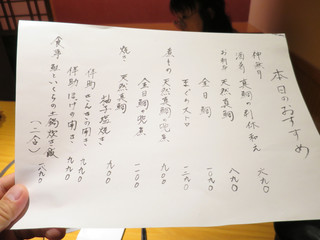 本日のおすすめ
酒肴 真鯛の利休和え 八九〇
お刺身 天然真鯛 九〇〇
金目鯛 一〇九〇
まぐろ大トロ 一二九〇
煮もの 天然真鯛の兜煮 九〇〇
金目鯛の兜煮 一一〇〇
焼き 天然真鯛 柚子塩焼き 九〇〇
得助 さんまの開き 七九〇
得助 ほっけの開き 九九〇
食事 鮭といくらの土鍋炊き飯 (一、二合) 一八九〇